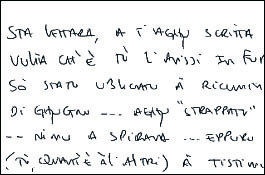 STA LETTARA, A T'AGHJU SCRITTA
VULIA CH'È TÙ L'AVISSI IN FUR
SÒ STATU UBLICATU À RICUMIN
DI GHJUGNU --- AGHJU "STRAPPATU"
-- NIMU A SPIRAVA --- EPPURU
(TÙ, QUANT'È À L'ALTRI) À TISTIM